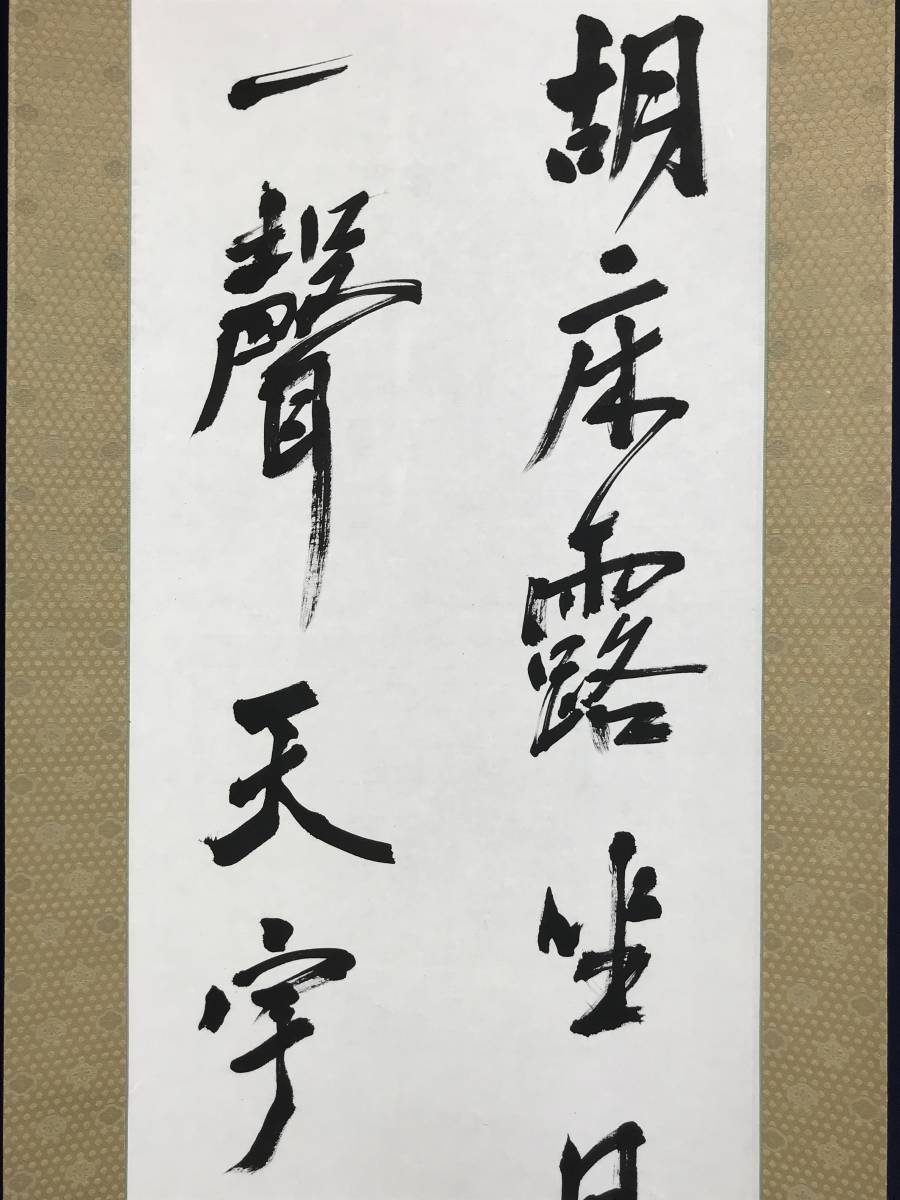 胡床露坐
一聲天宇